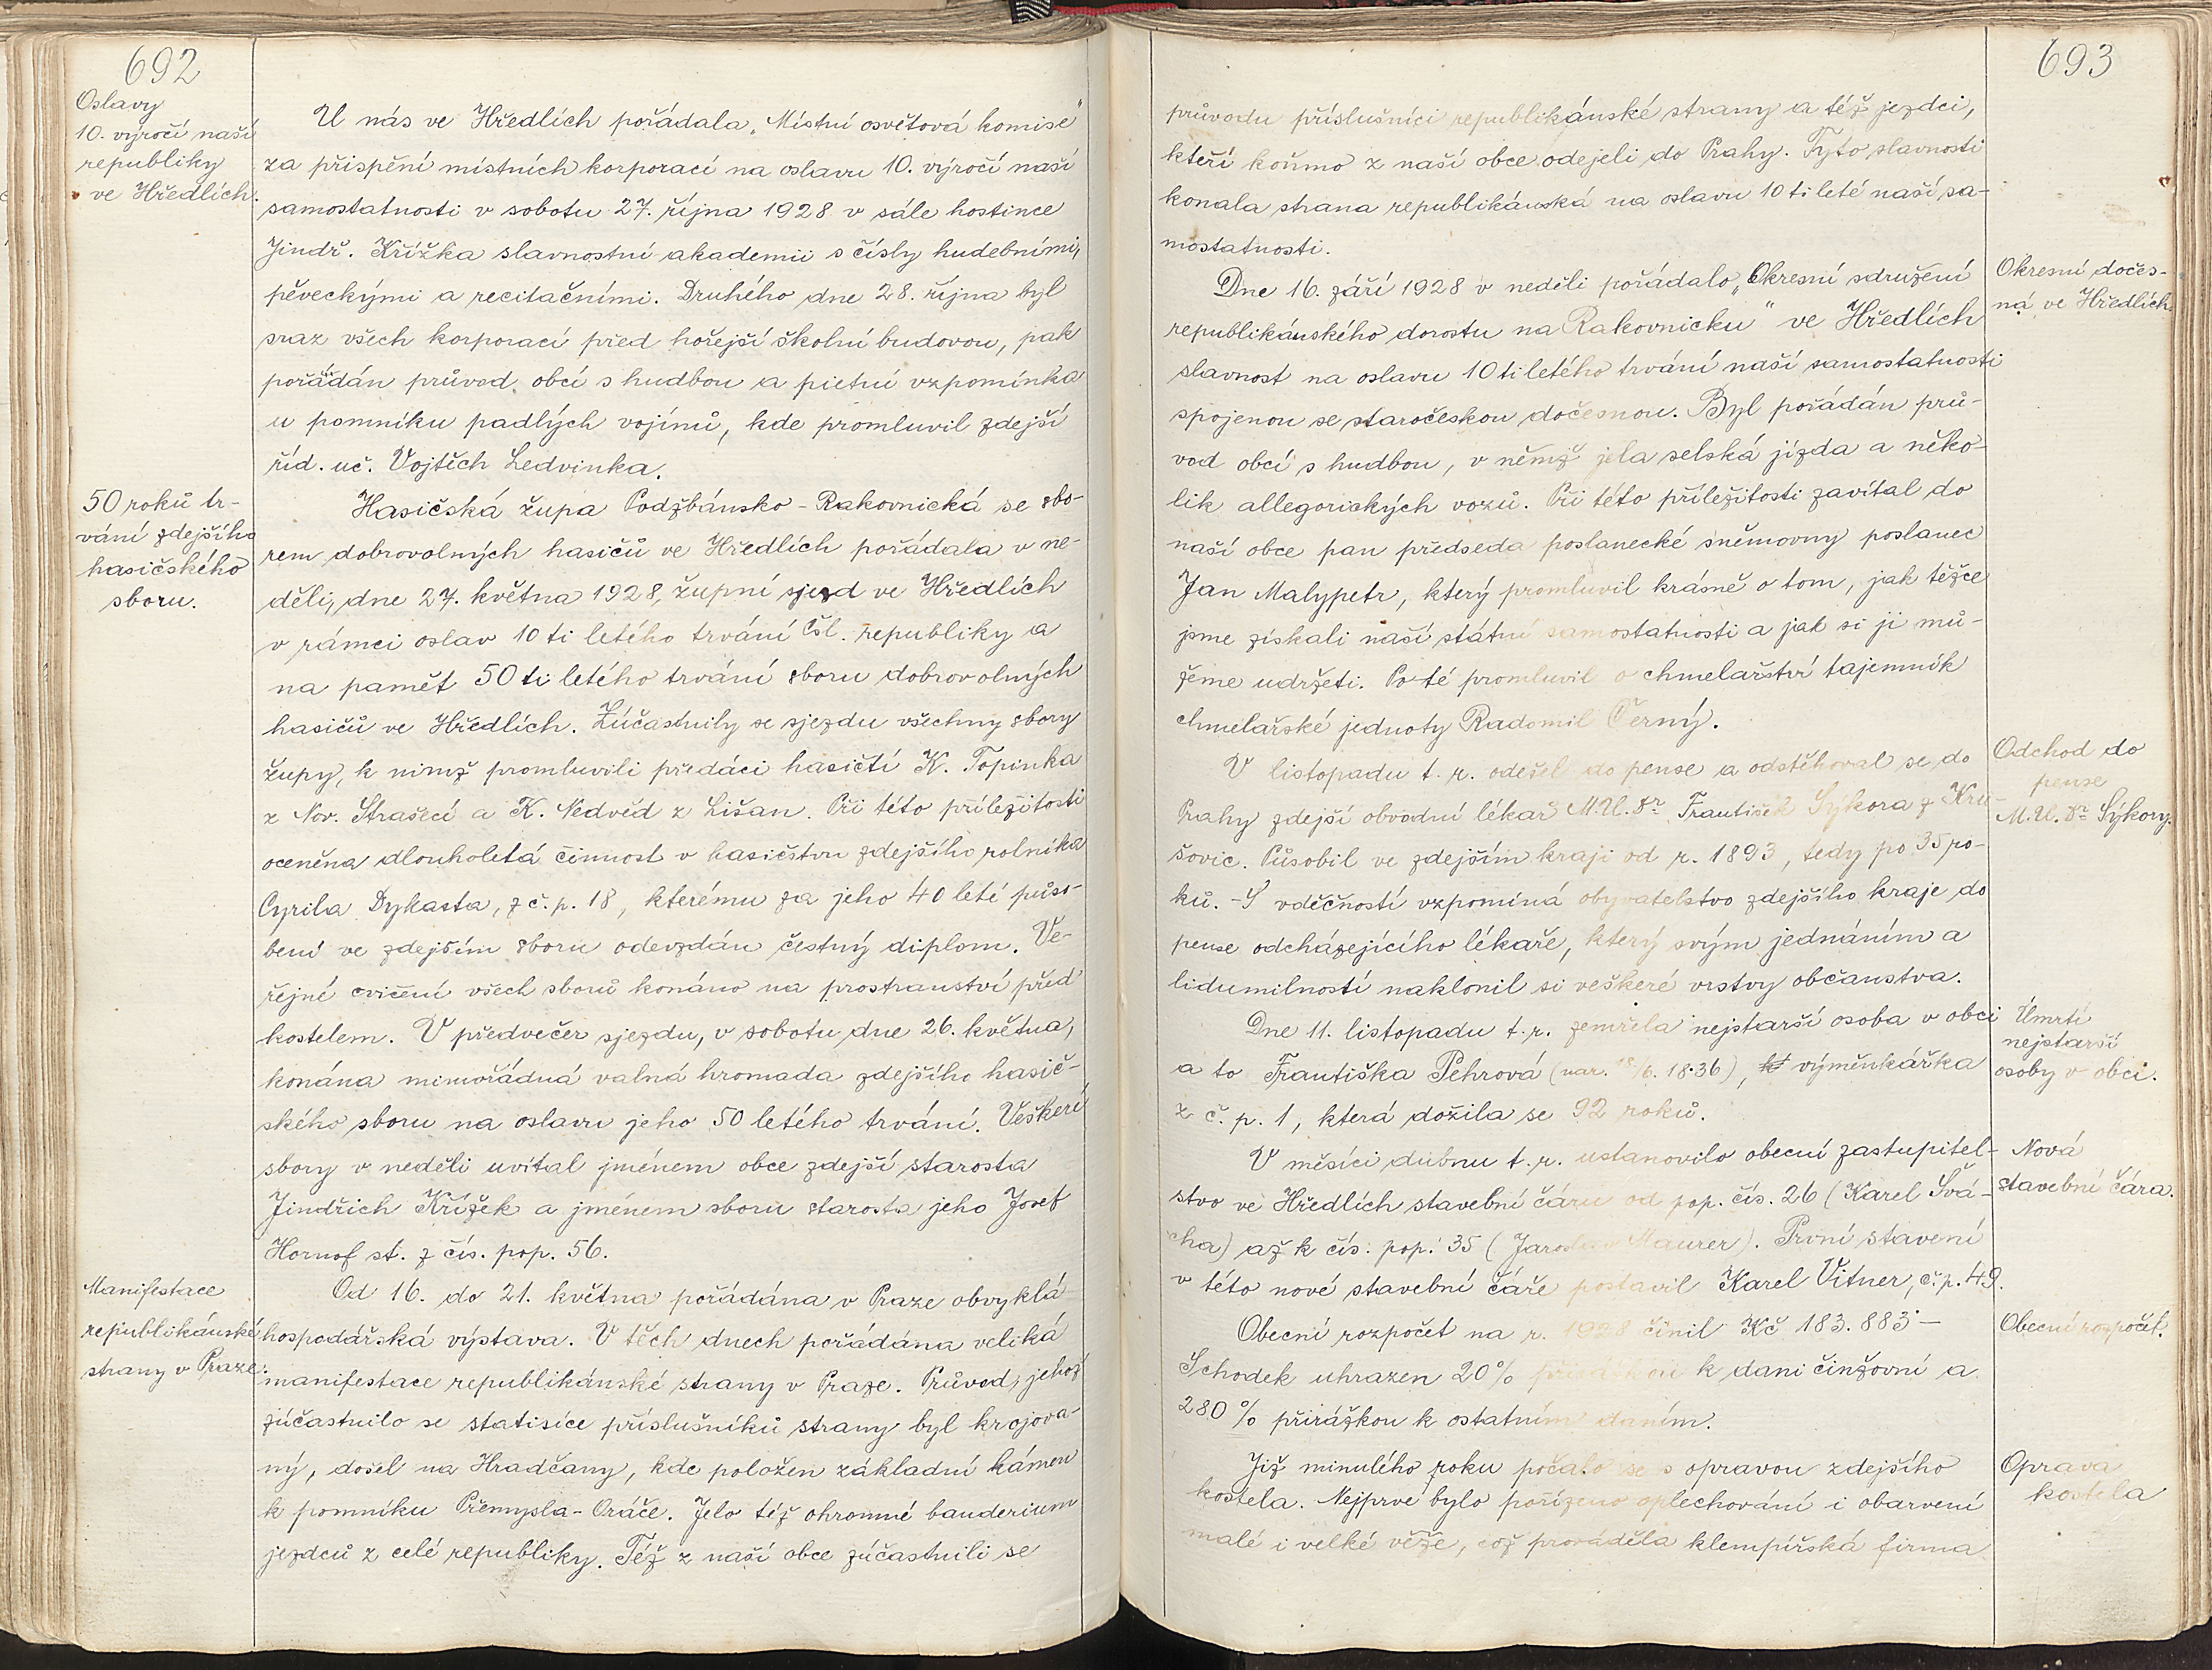 692
Oslavy
10. výročí naší
republiky
ve Hředlích.
U nás ve Hředlích pořádala „Místní osvětová komise"
za přispění místních korporací na oslavu 10. výročí naší
samostatnosti v sobotu 27. října 1928 v sále hostince
Jindř. Křížka slavnostní akademii s čísly hudebními,
pěveckými a recitačními. Druhého dne 28. října byl
sraz všech korporací před hořejší školní budovou, pak
pořádán průvod obcí s hudbou a pietní vzpomínka
u pomníku padlých vojínů, kde promluvil zdejší
říd. uč. Vojtěch Ledvinka.
50 roků tr-
vání zdejšího
hasičského
sboru.
Hasičská župa Podžbánsko-Rakovnická se sbo-
rem dobrovolných hasičů ve Hředlích pořádala v ne-
děli, dne 27. května 1928, župní sjezd ve Hředlích
v rámci oslav 10ti letého trvání čsl. republiky a
na pamět 50ti letého trvání sboru dobrovolných
hasičů ve Hředlích. Zúčastnily se sjezdu všechny sbory
župy, k nimž promluvili předáci hasičtí K. Topinka
z Nov. Strašecí a K. Nedvěd z Lišan. Při této príležitosti
oceněna dlouholetá činnost v hasičstvu zdejšího rolníka
Cyrila Dykasta, z č.p. 18, kterému za jeho 40 leté půso-
bení ve zdejším sboru odevzdán čestný diplom. Ve-
řejné cvičení všech sborů konáno na prostranství před
kostelem. V předvečer sjezdu, v sobotu dne 26. května,
konána mimořádná valná hromada zdejšího hasič-
ského sboru na oslavu jeho 50 letého trvání. Veškeré
sbory v neděli uvítal jménem obce zdejší starosta
Jindřich Křížek a jménem sboru starosta jeho Josef
Hornof st. z čís. pop. 56.
Manifestace
republikánské
strany v Praze.
Od 16. do 21. května pořádána v Praze obvyklá
hospodářská výstava. V těch dnech pořádána veliká
manifestace republikánské strany v Praze. Průvod, jehož
zúčastnilo se statisíce příslušníků strany byl krojova-
ný, došel na Hradčany, kde položen základní kámen
k pomníku Přemysla-Oráče. Jelo též ohromné banderium
jezdců z celé republiky. Též z naší obce zúčastnili se
693
průvodu příslušníci republikánské strany a též jezdci,
kteří koňmo z naší obce odejeli do Prahy. Tyto slavnosti
konala strana republikánská na oslavu 10ti leté naší sa-
mostatnosti.
Okresní dočes-
ná ve Hředlích.
Dne 16. září 1928 v neděli pořádalo „Okresní sdružení
republikánského dorostu na Rakovnicku" ve Hředlích
slavnost na oslavu 10ti letého trvání naší samostatnosti
spojenou se staročeskou dočesnou. Byl pořádán prů-
vod obcí s hudbou, v němž jela selská jízda a něko-
lik allegorických vozů. Při této příležitosti zavítal do
naší obce pan předseda poslanecké sněmovny poslanec
Jan Malypetr, který promluvil krásně o tom, jak těžce
jsme získali naší státní samostatnosti a jak si ji mů-
žeme udržeti. Po té promluvil o chmelařství tajemník
chmelařské jednoty Radomil Černý.
Odchod do
pense
M.U.Dr Sýkory.
V listopadu t. r. odešel do pense a odstěhoval se do
Prahy zdejší obvodní lékař M.U.Dr František Sýkora z Kru-
šovic. Působil ve zdejším kraji od r. 1893, tedy po 35 ro-
ků. - S vděčností vzpomíná obyvatelstvo zdejšího kraje do
pense odcházejícího lékaře, který svým jednáním a
lidumilností naklonil si veškeré vrstvy občanstva.
Úmrtí
nejstarší
osoby v obci.
Dne 11. listopadu t. r. zemřela nejstarší osoba v obci
a to Františka Pehrová (nar. 18/6. 1836), výměnkářka
z č. p. 1, která dožila se 92 roků.
Nová
stavební čára.
V měsíci dubnu t. r. ustanovilo obecní zastupitel-
stvo ve Hředlích stavební čáru od pop. čís. 26 (Karel Švá-
cha) až k čís. pop. 35 (Jaroslav Maurer). První stavení
v této nové stavební čáře postavil Karel Vitner, č.p. 49.
Obecní rozpočet.
Obecní rozpočet na r. 1928 činil Kč 183.883·-
Schodek uhrazen 20% přirážkou k dani činžovní a
280% přirážkou k ostatním daním.
Oprava
kostela
Již minulého roku počalo se s opravou zdejšího
kostela. Nejprve bylo pořízeno oplechování i obarvení
malé i velké věže, což prováděla klempířská firma